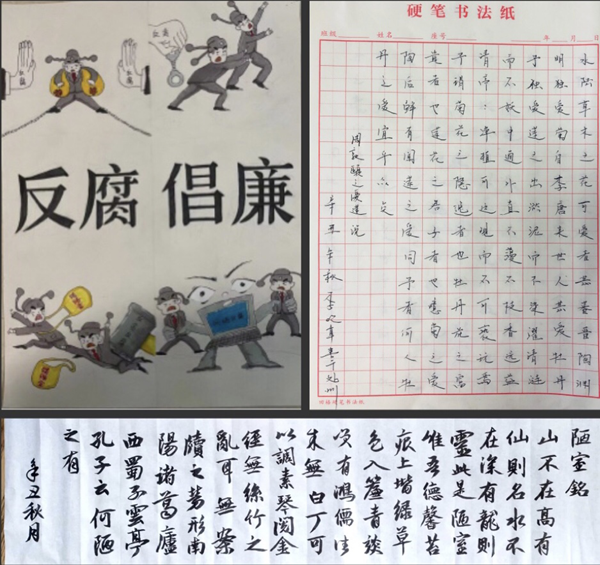 反腐 倡廉
硬笔书法纸
班级 姓名 座号 年 月 日
水陆草木之花可爱者甚蕃晋陶渊
明独爱菊自李唐来世人甚爱牡丹
予独爱莲之出淤泥而不染濯清涟
而不妖中通外直不蔓不枝香远益
清亭亭净植可远观而不可亵玩焉
予谓菊花之隐逸者也牡丹花之富
贵者也莲花之君子者也噫菊之爱
陶后鲜有闻莲之爱同予者何人牡
丹之爱宜乎众矣
周敦颐之爱莲说
辛丑年秋
陋室銘
山不在高有
仙則名水不
在深有龍則
靈此是陋室
惟吾德馨苔
痕上堦緑草
色入簾青談
笑有鴻儒往
来無白丁可
以調素琴閲金
經無絲竹之
亂耳無案
牘之勞形南
陽諸葛廬
西蜀子雲亭
孔子云何陋
之有
辛丑秋月